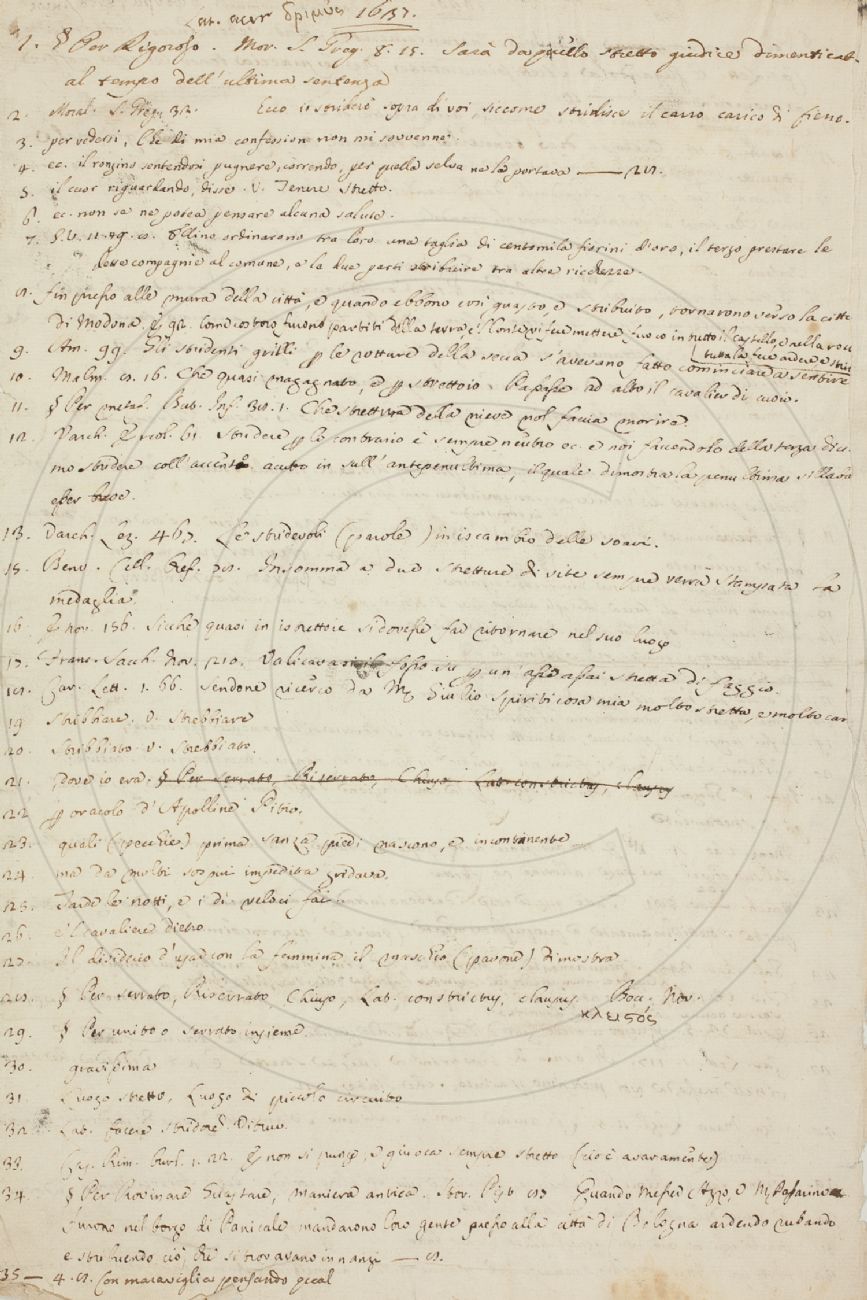 Lat. acer δριμύς 1637.
1. § Per Rigoroso. Mor. S. Greg. 8. 15. Sarà da quello stretto giudice dimenticato
al tempo dell'ultima sentenza
2. Moral. S. Greg. 32. Ecco io striderò sopra di voi, siccome stridisce il carro carico di fieno.
3. per vedersi, Che di mia confession non mi sovvenne.
4. ec. il ronzino sentendosi pugnere, correndo, per quella selva ne la portava
5. il cuor riguardando, disse. V. Tenere stretto.
6. ec. non se ne potea pensare alcuna salute.
7. ordinarono tra loro una taglia di centomila fiorini d'oro, il terzo prestare le
dette compagnie al comune, e le due parti stribuire tra altre ricchezze.
8. fin presso alle mura della città, e quando ebbono così guasto, e stribuito, tornarono verso la città
di Modona. Come costoro furono partiti della terra e' Conte vi fece mettere fuoco in tutto il castello e nella rocca
tutta la fue ardere e strib
9. Am. 99. Gli stridenti grilli p le rotture della secca s'avevano fatto cominciare a sentire
10. Malm. 16. Che quasi magagnato, e p strettoio, Papasse ad alto il cavalier di cuoio.
11. § Per metaf. But. Inf. 30. 1. Che strettura della nieve nol faccia morire
12. Varch. Ercol. 61 Stridere p lo contrario è sempre neutro ec. e noi facendolo della terza dicia
mo stridere coll'accento acuto in sull'antepenultima, il quale dimostra la penultima sillaba
esser breve.
13. Varch. Lez. 467. Le stridevoli (parole) in iscambio delle soavi.
15. Benv. Cell. Oref. Insomma a due stretture di vite sempre verrà stampata la
medaglia.
16. nov. 156. Sicchè quasi in istrettoie si dovesse far ritornare nel suo luogo
17. Franc. Sacch. Nov. 210. Valicava un asse assai stretta di faggio.
18. Car. Lett. 1. 66. sendone ricerco da M. Giulio Spiriti cosa mia molto stretta, e molto car.
19 Stribbiare. V. Strebbiare
20. Stribbiato. V. Strebbiato.
21. dove io era. § Per Serrato, Riserrato, Chiuso, Lat. constrictus, clausus
22 p oracolo d'Apolline Pitio.
23. quali (pecchie) prima sanza piedi nascono, e incontanente
24. ma da molti sogni impedita gridava.
25. Tarde le notti, e i dì veloci fai.
26. e 'l cavaliere dietro
27. Il disiderio d'usar con la femmina il maschio (pavone) dimostra
28. § Per serrato, Riserrato, Chiuso, Lat. constrictus, clausus. Bocc. Nov.
κλειστός
29. § Per unito o serrato insieme
30. gravissima
31. Luogo stretto, Luogo di piccolo circuito
32. Lat. facere stridore. Vitruv.
33. Rim. burl. 1. 22. E non si punge, e giuoca sempre stretto (cioè avaramente)
34. § Per Rovinare Guastare, maniera antica. Stor. Pist. Quando Messer Azzo, e M. Passarino
furono nel borgo di Panicale mandarono loro gente presso alla città di Bologna ardendo rubando
e stribuendo ciò, che si trovavano innanzi
35 — 4. 8. Con maraviglia pensando